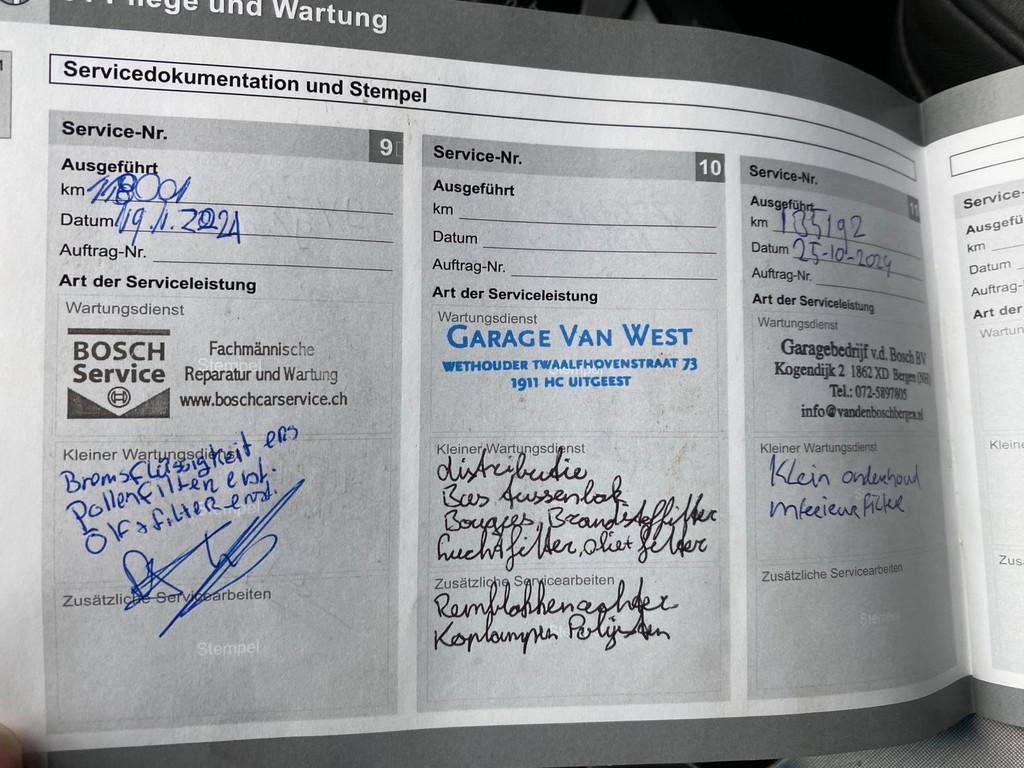 Pflege und Wartung
Servicedokumentation und Stempel
Service-Nr. 9
Ausgeführt
km 118001
Datum 19.1.2021
Auftrag-Nr.
Art der Serviceleistung
Wartungsdienst
BOSCH
Service
Fachmännische
Reparatur und Wartung
www.boschcarservice.ch
Stempel
Kleiner Wartungsdienst
Bremsflüssigkeit ers
Pollenfilter erst.
Öl + filter erst.
Zusätzliche Servicearbeiten
Stempel
Service-Nr. 10
Ausgeführt
km
Datum
Auftrag-Nr.
Art der Serviceleistung
Wartungsdienst
GARAGE VAN WEST
WETHOUDER TWAALFHOVENSTRAAT 73
1911 HC UITGEEST
Stempel
Kleiner Wartungsdienst
distributie
Bougies, Brandstoffilter
Luchtfilter, olie+filter
Zusätzliche Servicearbeiten
Remblokken achter
Koplampen Polijsten
Service-Nr. 11
Ausgeführt
km 135192
Datum 25-10-2024
Auftrag-Nr.
Art der Serviceleistung
Wartungsdienst
Garagebedrijf v.d. Bosch BV
Kogendijk 2 1862 XD Bergen (NH)
Tel.: 072-5897805
info@vandenboschbergen.nl
Kleiner Wartungsdienst
Klein onderhoud
filter
Zusätzliche Servicearbeiten
Stempel
Service-
Ausgefü
km
Datum
Auftrag-
Art der
Wartun
Kleine
Zus